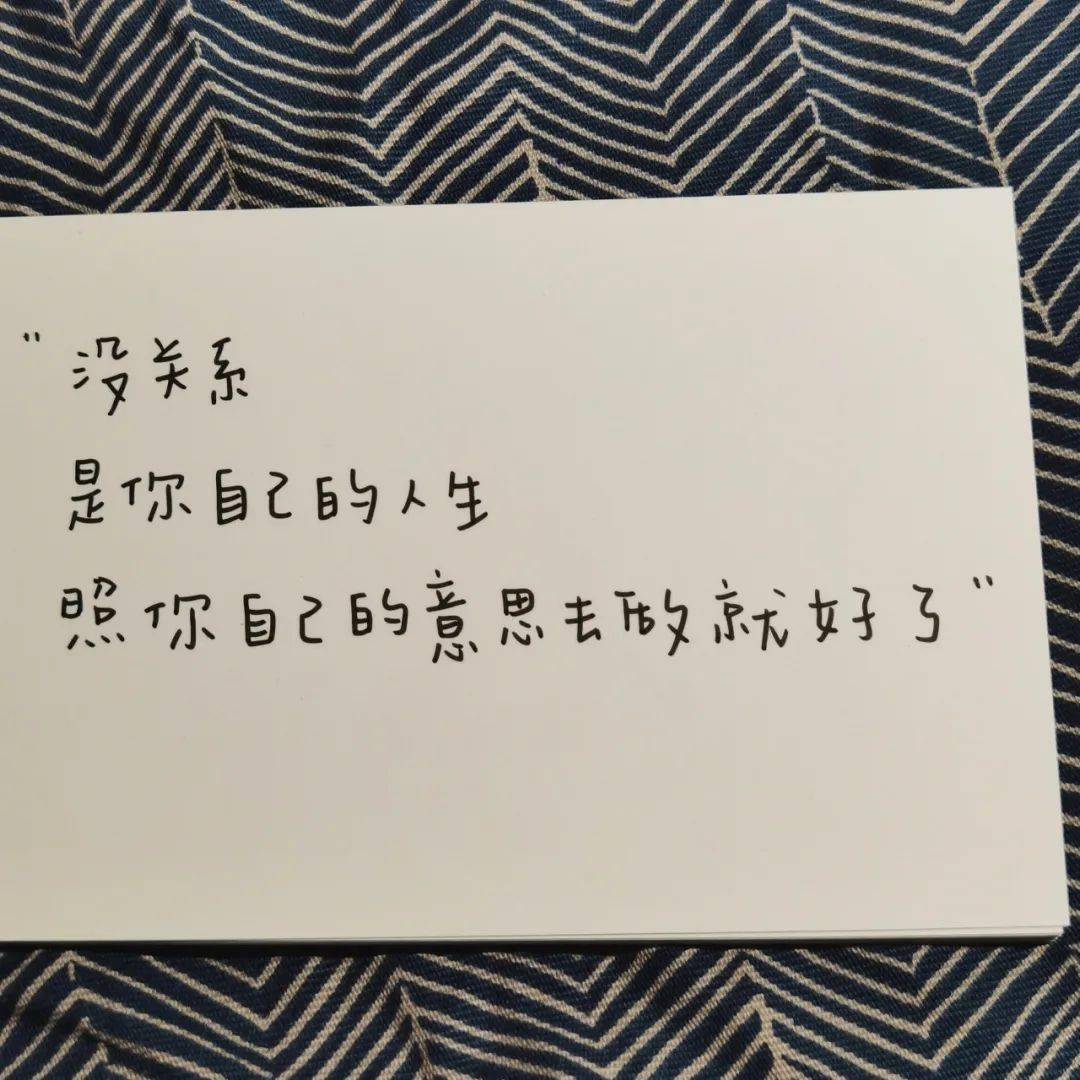 "没关系
是你自己的人生
照你自己的意思去做就好了"